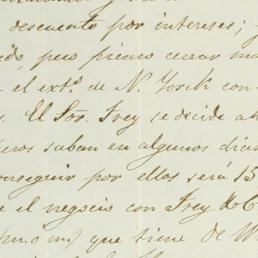 descuento por intereses; y
ido, pero pienso cerrar ma
el ext.º de N. York con
s. El Sor. Frey se decide ah
eros suban en algunos dias
onseguir por ellos será 15
e el negocio con Frey & C
que tiene de W